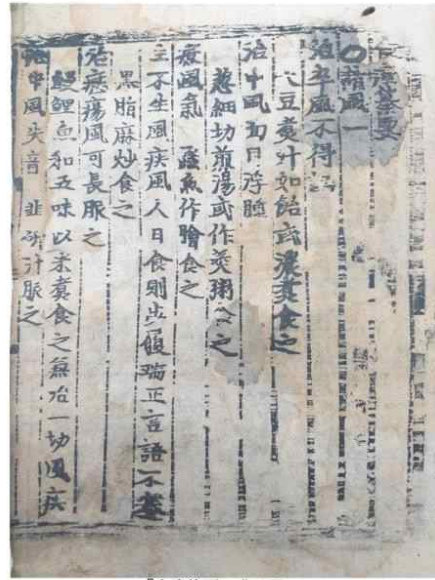 療纂要
〇諸風一
治卒風不得語
大豆煮汁如飴或濃煮食之
治中風面目浮腫
葱細切煎湯或作羹粥食之
療風氣 鱸魚作膾食之
主不生風疾風人日食則步履端正言語不蹇
黑脂麻炒食之
治㾮瘍風可長服之
鰻鱺魚和五味以米煑食之兼治一切風疾
治中風失音 韭研汁服之